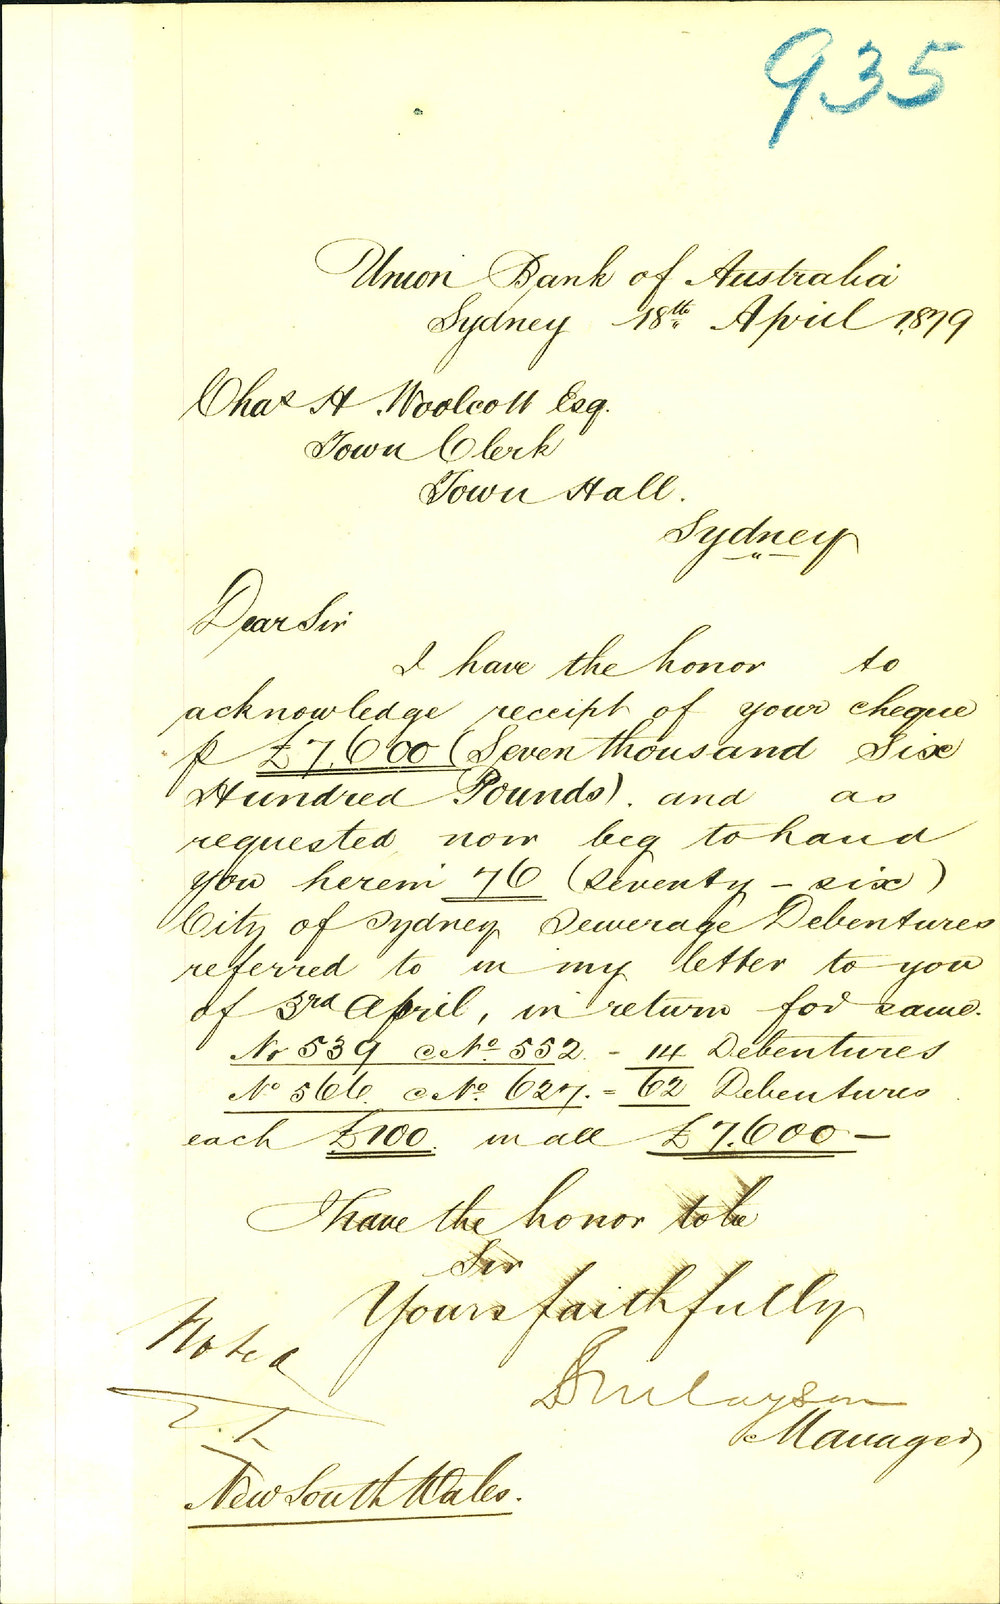 935
Union Bank of Australia
Sydney 18th April 1879
Chas H Woolcott Esq.
Town Clerk
Town Hall.
Sydney
Dear Sir
I have the honor to
acknowledge receipt of your cheque
p £7,600 (Seven thousand Six
Hundred Pounds). and as
requested, now beg to hand
you herein 76 (Seventy-six)
City of Sydney Sewerage Debentures
referred to in my letter to you
of 3rd April, in return for same.
No 539 @ No. 552. - 14 Debentures
No 566 @ No. 627. = 62 Debentures
each £100. in all £7,600 —
I have the honor to be
Sir
Yours faithfully
Manager
Noted
New South Wales.